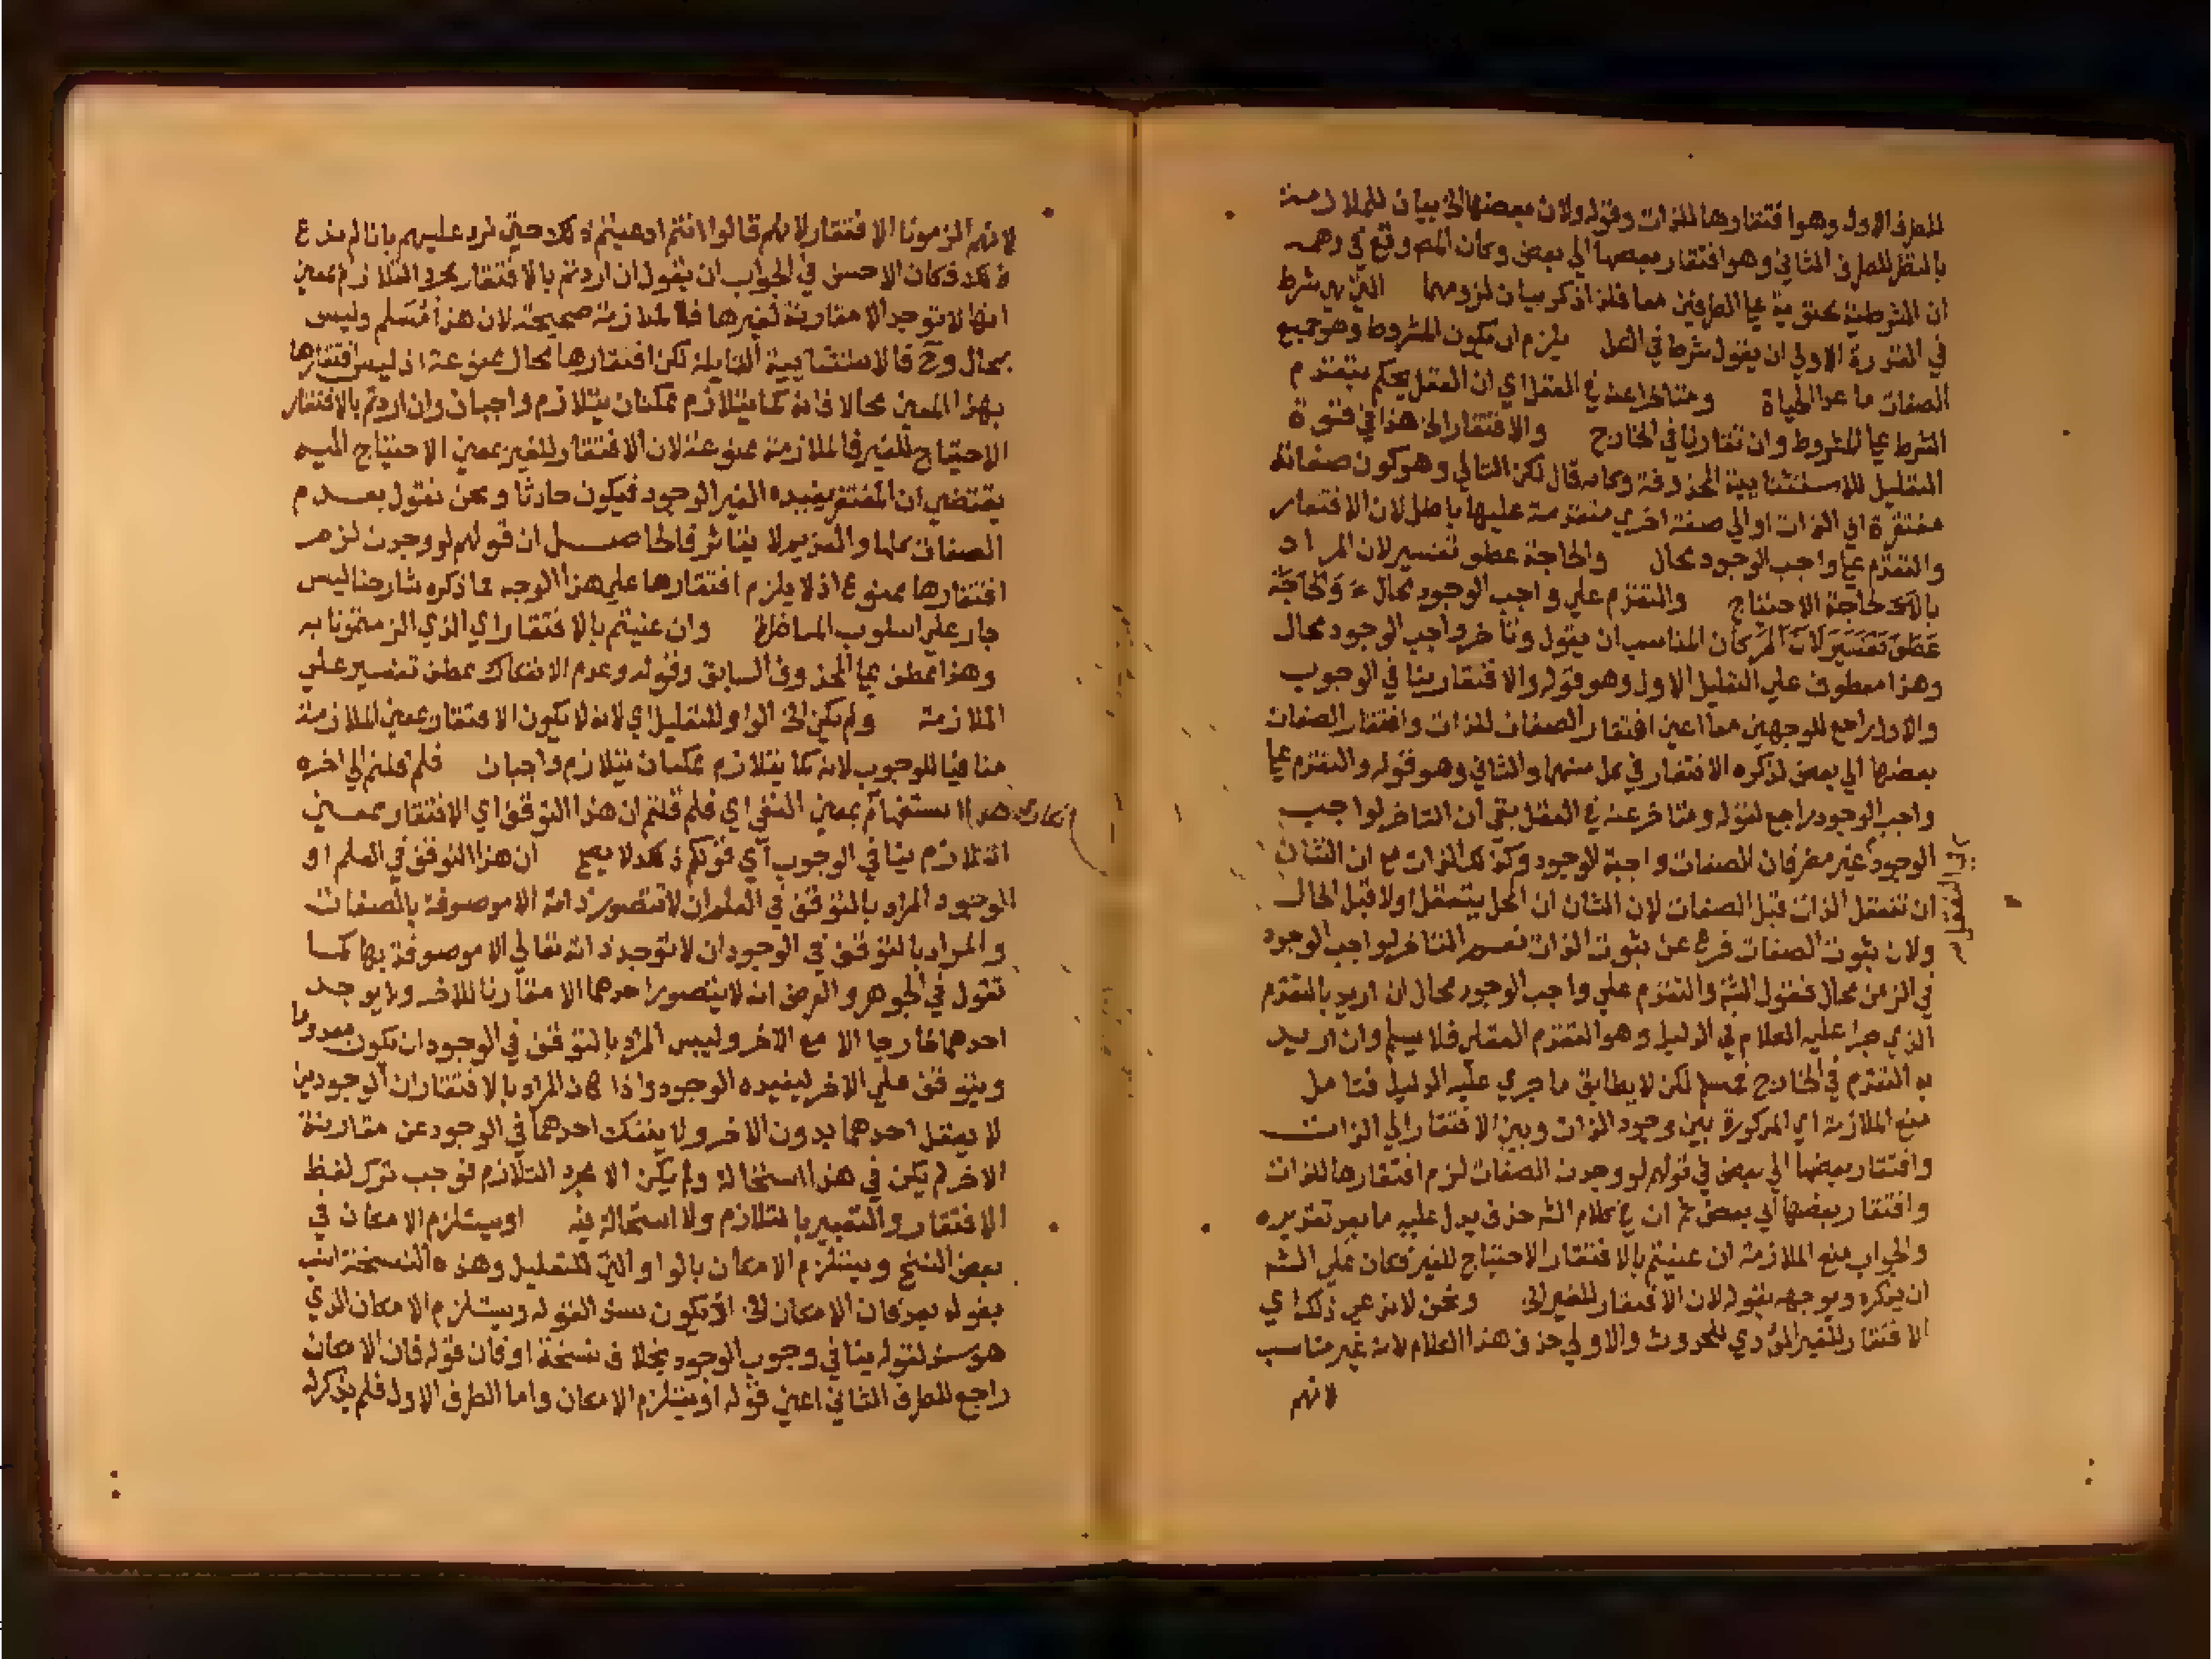 للطرف الاول وهو افتقارها للذات وقوله ولان بعضها الخ بيان للملازمة
بالنظر للطرف الثاني وهو افتقار بعضها الي بعض وكان المص وقع في وهمه
ان الشرطية محتوية علي الطرفين معا فلذا ذكر بيان لزومهما التي هي شرط
في الاولي ان يقول شرط في الكل يلزم ان يكون المشروط وهو جميع
الصفات ما عدا الحياة ومتاخر عنه في العقل اي ان العقل يحكم بتقدم
الشرط علي المشروط وان تقارنا في الخارج والافتقار الخ هذا في قوة
التعليل للاستثنائية المحذوفة وكانه قال لكن التالي وهو كون صفاته
مفتقرة الي الذات او الي صفة اخري متقدمة عليها باطل لان الافتقار
والتقدم علي واجب الوجود محال والحاجة عطف تفسير لان المراد
الاحتياج والتقدم علي واجب الوجود محال والحاجة
عطف تفسير لان المر كان المناسب ان يقول وتاخر واجب الوجود محال
وهذا معطوف علي التعليل الاول وهو قوله والافتقار ينافي الوجوب
والاول راجع للوجهين معا اعني افتقار الصفات للذات وافتقار الصفات
بعضها الي بعض لذكره الافتقار في كل منهما والثاني وهو قوله والتقدم علي
واجب الوجود راجع لقوله ومتاخر عنه في العقل بقي ان التاخر لواجب
الوجود غير مضر فان الصفات واجبة الوجود وكذلك الذات مع ان الشان
ان تتعقل الذات قبل الصفات لان الشان ان المحل يتعقل اولا قبل الحال
ولان ثبوت الصفات فرع عن ثبوت الذات نعم التاخر لواجب الوجود
في الزمن محال فقول الشه والتقدم علي واجب الوجود محال ان اريد بالتقدم
الذي جرا عليه الكلام في الدليل وهو التقدم العقلي فلا يسلم وان اريد
به التقدم في الخارج فمسلم لكن لا يطابق ما جري عليه الدليل فتامل
منع الملازمة اي المذكورة بين وجود الذات وبين الافتقار الي الذات
وافتقار بعضها الي بعض في قولهم لو وجدت الصفات لزم افتقارها للذات
وافتقار بعضها الي بعض ثم ان في كلام الشه حذف يدل عليه ما بعد تقديره
والجواب منع الملازمة ان عنيتم بالافتقار الاحتياج للغير فكان علي الشه
ان يذكره ويوجهه بقوله لان الافتقار للغير الخ ونحن لا ندعي ذلك اي
الافتقار للغير المؤدي للحدوث والاولي حذف هذا الكلام لانه غير مناسب
لانهم
لانهم الزمونا الافتقار لا انهم قالوا انتم ادعيتم ذلك حتي نرد عليهم بانا لم ندع
ذلك فكان الاحسن في الجواب ان يقول ان اردتم بالافتقار مجرد التلازم بمعني
انها لا توجد الا مقارنة لغيرها فالملازمة صحيحة لان هذا مسلم وليس
بمحال وح فالاستثنائية القايلة لكن افتقارها محال ممنوعة اذ ليس افتقارها
بهذا المعني محالا فانه كما يتلازم ممكنان يتلازم واجبان وان اردتم بالافتقار
الاحتياج للغير فالملازمة ممنوعة لان الافتقار للغير بمعني الاحتياج اليه
يقتضي ان المفتقر يفيده الغير الوجود فيكون حادثا ونحن نقول بعدم
الصفات كلها والقديم لا يتاثر فالحاصل ان قولهم لو وجدت لزم
افتقارها ممنوع اذ لا يلزم افتقارها علي هذا الوجه فما ذكره شارحنا ليس
جار علي اسلوب المناظرة وان عنيتم بالافتقار اي الذي الزمتمونا به
وهذا عطف علي المحذوف السابق وقوله وعدم الانفكاك عطف تفسير علي
الملازمة ولم يكن الخ الواو للتعليل اي لانه لا يكون الافتقار بمعني الملازمة
منافيا للوجوب لانه كما يتلازم ممكنان يتلازم واجبان فلم قلتم الي اخره
استفهام بمعني النفي اي فلم قلتم ان هذا التوقف اي الافتقار بمعني
التلازم ينافي الوجوب اي قولكم ذلك لا يصح ان هذا التوقف في العلم او
الوجود المراد بالتوقف في العلم ان لا تتصور ذاته الا موصوفة بالصفات
والمراد بالتوقف في الوجود ان لا توجد ذاته تعالي الا موصوفة بها كما
تقول في الجوهر والعرض انه لا يتصور احدهما الا مقارنا للاخر ولا يوجد
احدهما خارجا الا مع الاخر وليس المراد بالتوقف في الوجود ان يكون معدوما
ويتوقف علي الاخر ليفيده الوجود واذا كان المراد بالافتقار ان الوجودين
لا يعقل احدهما بدون الاخر ولا ينفك احدهما في الوجود عن مقارنة
الاخر لم يكن في هذا استحالة ولم يكن الا مجرد التلازم فوجب ترك لفظ
الافتقار والتعبير بالتلازم ولا استحالة فيه او يستلزم الامكان في
بعض النسخ ويستلزم الامكان بالواو التي للتعليل وهذه النسخة انسب
بقوله بعد فان الامكان الخ يكون سند القوله ويستلزم الامكان الذي
هو سند لقوله ينافي وجوب الوجود بخلاف نسخة او فان قوله فان الامكان
راجع للطرف الثاني اعني قوله او يستلزم الامكان واما الطرف الاول فلم يذكر له